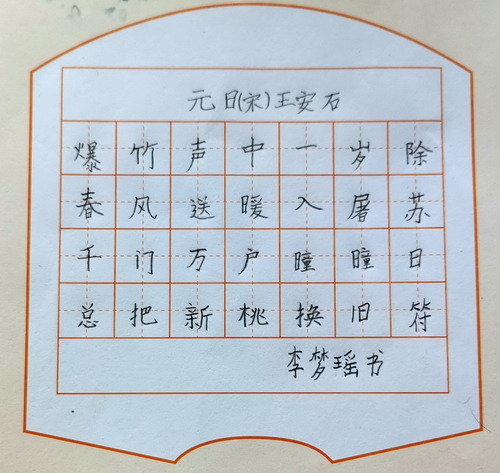 元日(宋)王安石
爆竹声中一岁除
春风送暖入屠苏
千门万户瞳瞳日
总把新桃换旧符
李梦瑶书